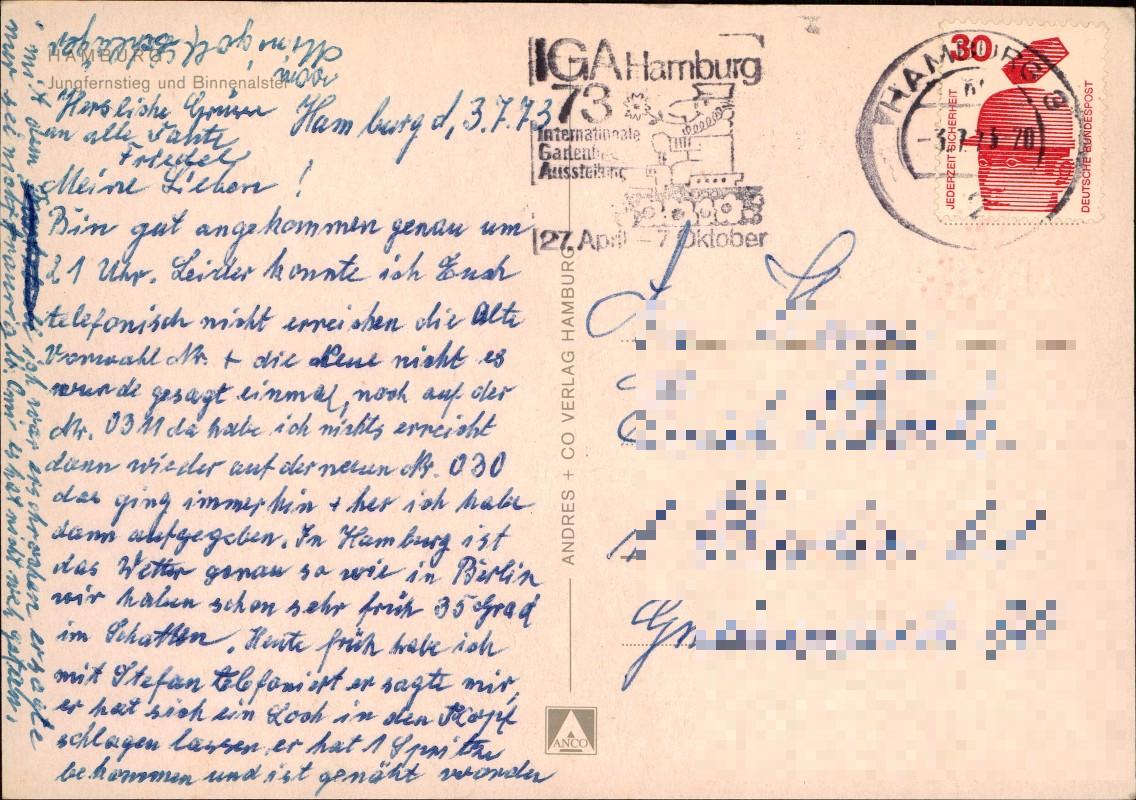 HAMBURG
Jungfernstieg und Binnenalster
Hersliche Grüsse
an alle Tante
Friedel
Hamburg d, 3.7.73
Meine Lieben !
Bin gut angekommen genau um
21 Uhr. Leider konnte ich Euch
telefonisch nicht erreichen die Alte
Vorwahl Nr. + die Neue nicht es
wurde gesagt einmal, noch auf der
Nr. 0311 da habe ich nichts erreicht
dann wieder auf der neuen Nr. 030
das ging immer hin + her ich habe
dann aufgegeben. In Hamburg ist
das Wetter genau so wie in Berlin
wir haben schon sehr früh 35 Grad
im Schatten. Heute früh habe ich
mit Stefan telefoniert er sagte mir,
er hat sich ein Loch in den Kopf
schlagen lassen er hat 1 Spritze
bekommen und ist genäht worden
mit dem
ich war erschrocken er sagte
mir sei
es hat nicht weh getan.
vom
IGA Hamburg
73
Internationale
Gartenbau
Ausstellung
27. April – 7. Oktober
HAMBURG
2
30
JEDERZEIT SICHERHEIT
DEUTSCHE BUNDESPOST
ANDRES + CO VERLAG HAMBURG
ANCO